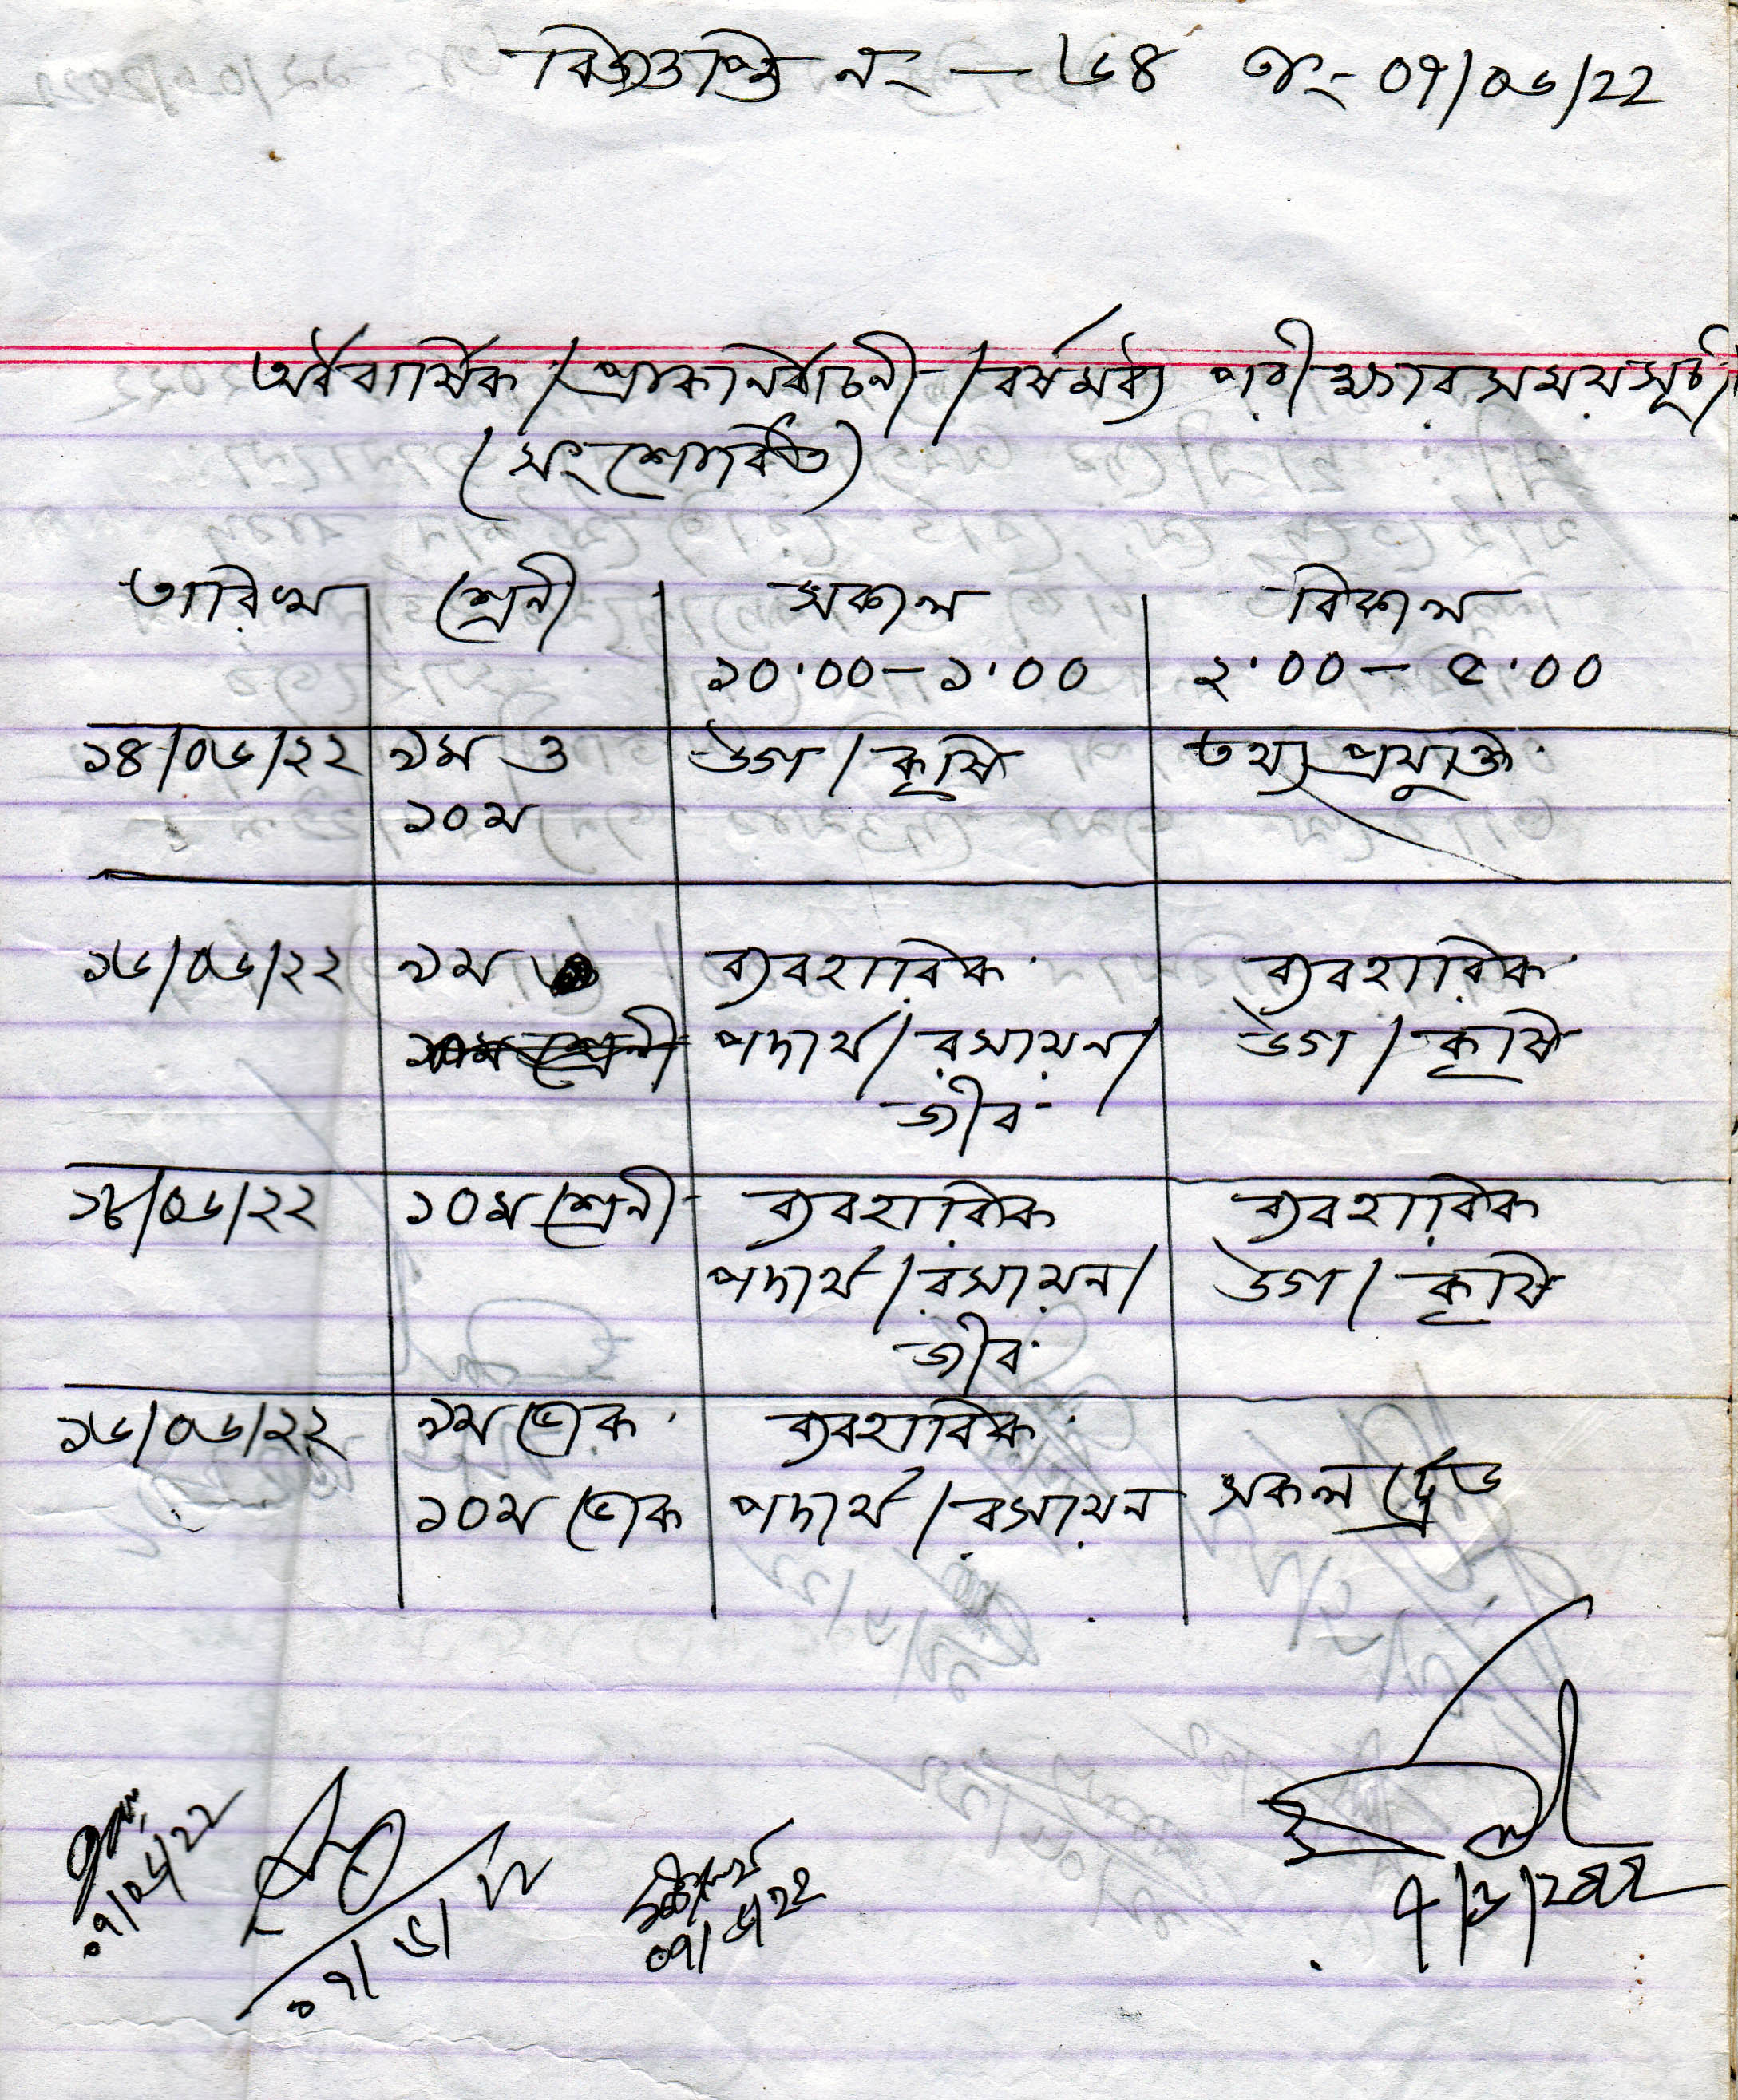 বিজ্ঞপ্তি নং – ৬৪ তাং 07/০৬/22
অর্ধবার্ষিক / প্রাকনির্বাচনী / বর্ষমধ্য পরীক্ষার সময়সূচী
(সংশোধিত)
তারিখ শ্রেনী সকাল বিকাল
১০.০০ – ১.০০ ২.০০ – ৫.০০
১৪/০৬/২২ ৯ম ও উগ / কৃষি তথ্য প্রযুক্তি
১০ম
১৬/০৬/২২ ৯ম ব্যবহারিক ব্যবহারিক
১০ম শ্রেনী পদার্থ / রসায়ন / উগ / কৃষি
জীব
১৮/০৬/২২ ১০ম শ্রেনী ব্যবহারিক ব্যবহারিক
পদার্থ / রসায়ন / উগ / কৃষি
জীব
১৬/০৬/২২ ৯ম ভোক ব্যবহারিক
১০ম ভোক পদার্থ / রসায়ন সকল ট্রেড
০৭/০৬/22
০৭/৬/২২
০৭/৬/22